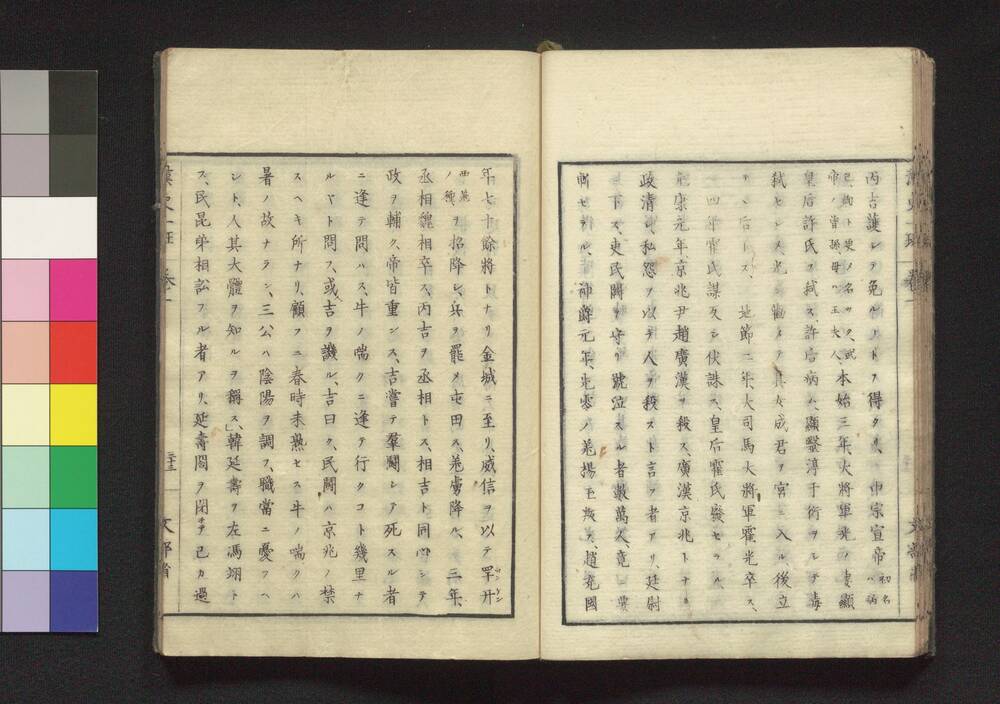 丙吉護シテ免ルヽコトヲ得タリ、中宗宣帝 初名ハ病
已、詢ト更ノ名ツク、武帝ノ曾孫母ハ王夫人、本始三年、大將軍光ノ妻顯
皇后許氏ヲ弑ス、許后病ム、顯毉淳于衍ヲシテ毒
弑セシメ光ニ勸メテ其女成君ヲ宮ニ入ル後立
后トス、地節二年、大司馬大將軍霍光卒ス、
四年霍氏謀反シ伏誅ス、皇后霍氏廢セラル、
元康元年、京兆尹趙廣漢ヲ殺ス、廣漢京兆トナリ
政清シ私怨ヲ以テ人ヲ殺スト言フ者アリ、廷尉
ニ下ス、吏民闕ヲ守リ號泣スル者數萬人、竟ニ要
斬セラル、神爵元年、先零ノ羗楊玉叛ス、趙充國
年七十餘將トナリ金城ニ至リ、威信ヲ以テ罕幵
西羗ノ種ヲ招降シ、兵ヲ罷メ屯田ス、羗虜降ル、三年、
丞相魏相卒ス、丙吉ヲ丞相トス、相吉ト同心シテ
政ヲ輔ク、帝皆重ンス、吉嘗テ羣鬪シテ死スル者
ニ逢テ問ハス、牛ノ喘クニ逢テ行クコト幾里ナ
ルヤト問フ、或吉ヲ譏ル、吉曰ク、民鬪ハ京兆ノ禁
スヘキ所ナリ、顧フニ春時未熱セス牛ノ喘クハ
暑ノ故ナラン、三公ハ陰陽ヲ調フ、職當ニ憂フヘ
シト、人其大體ヲ知ルヲ稱ス、韓延壽ヲ左馮翊ト
ス、民昆弟相訟フル者アリ、延壽閤ヲ閉チ己カ過
漢史一班 卷一
三十三
文部省